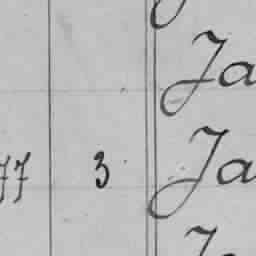 Ja
77 3 Ja